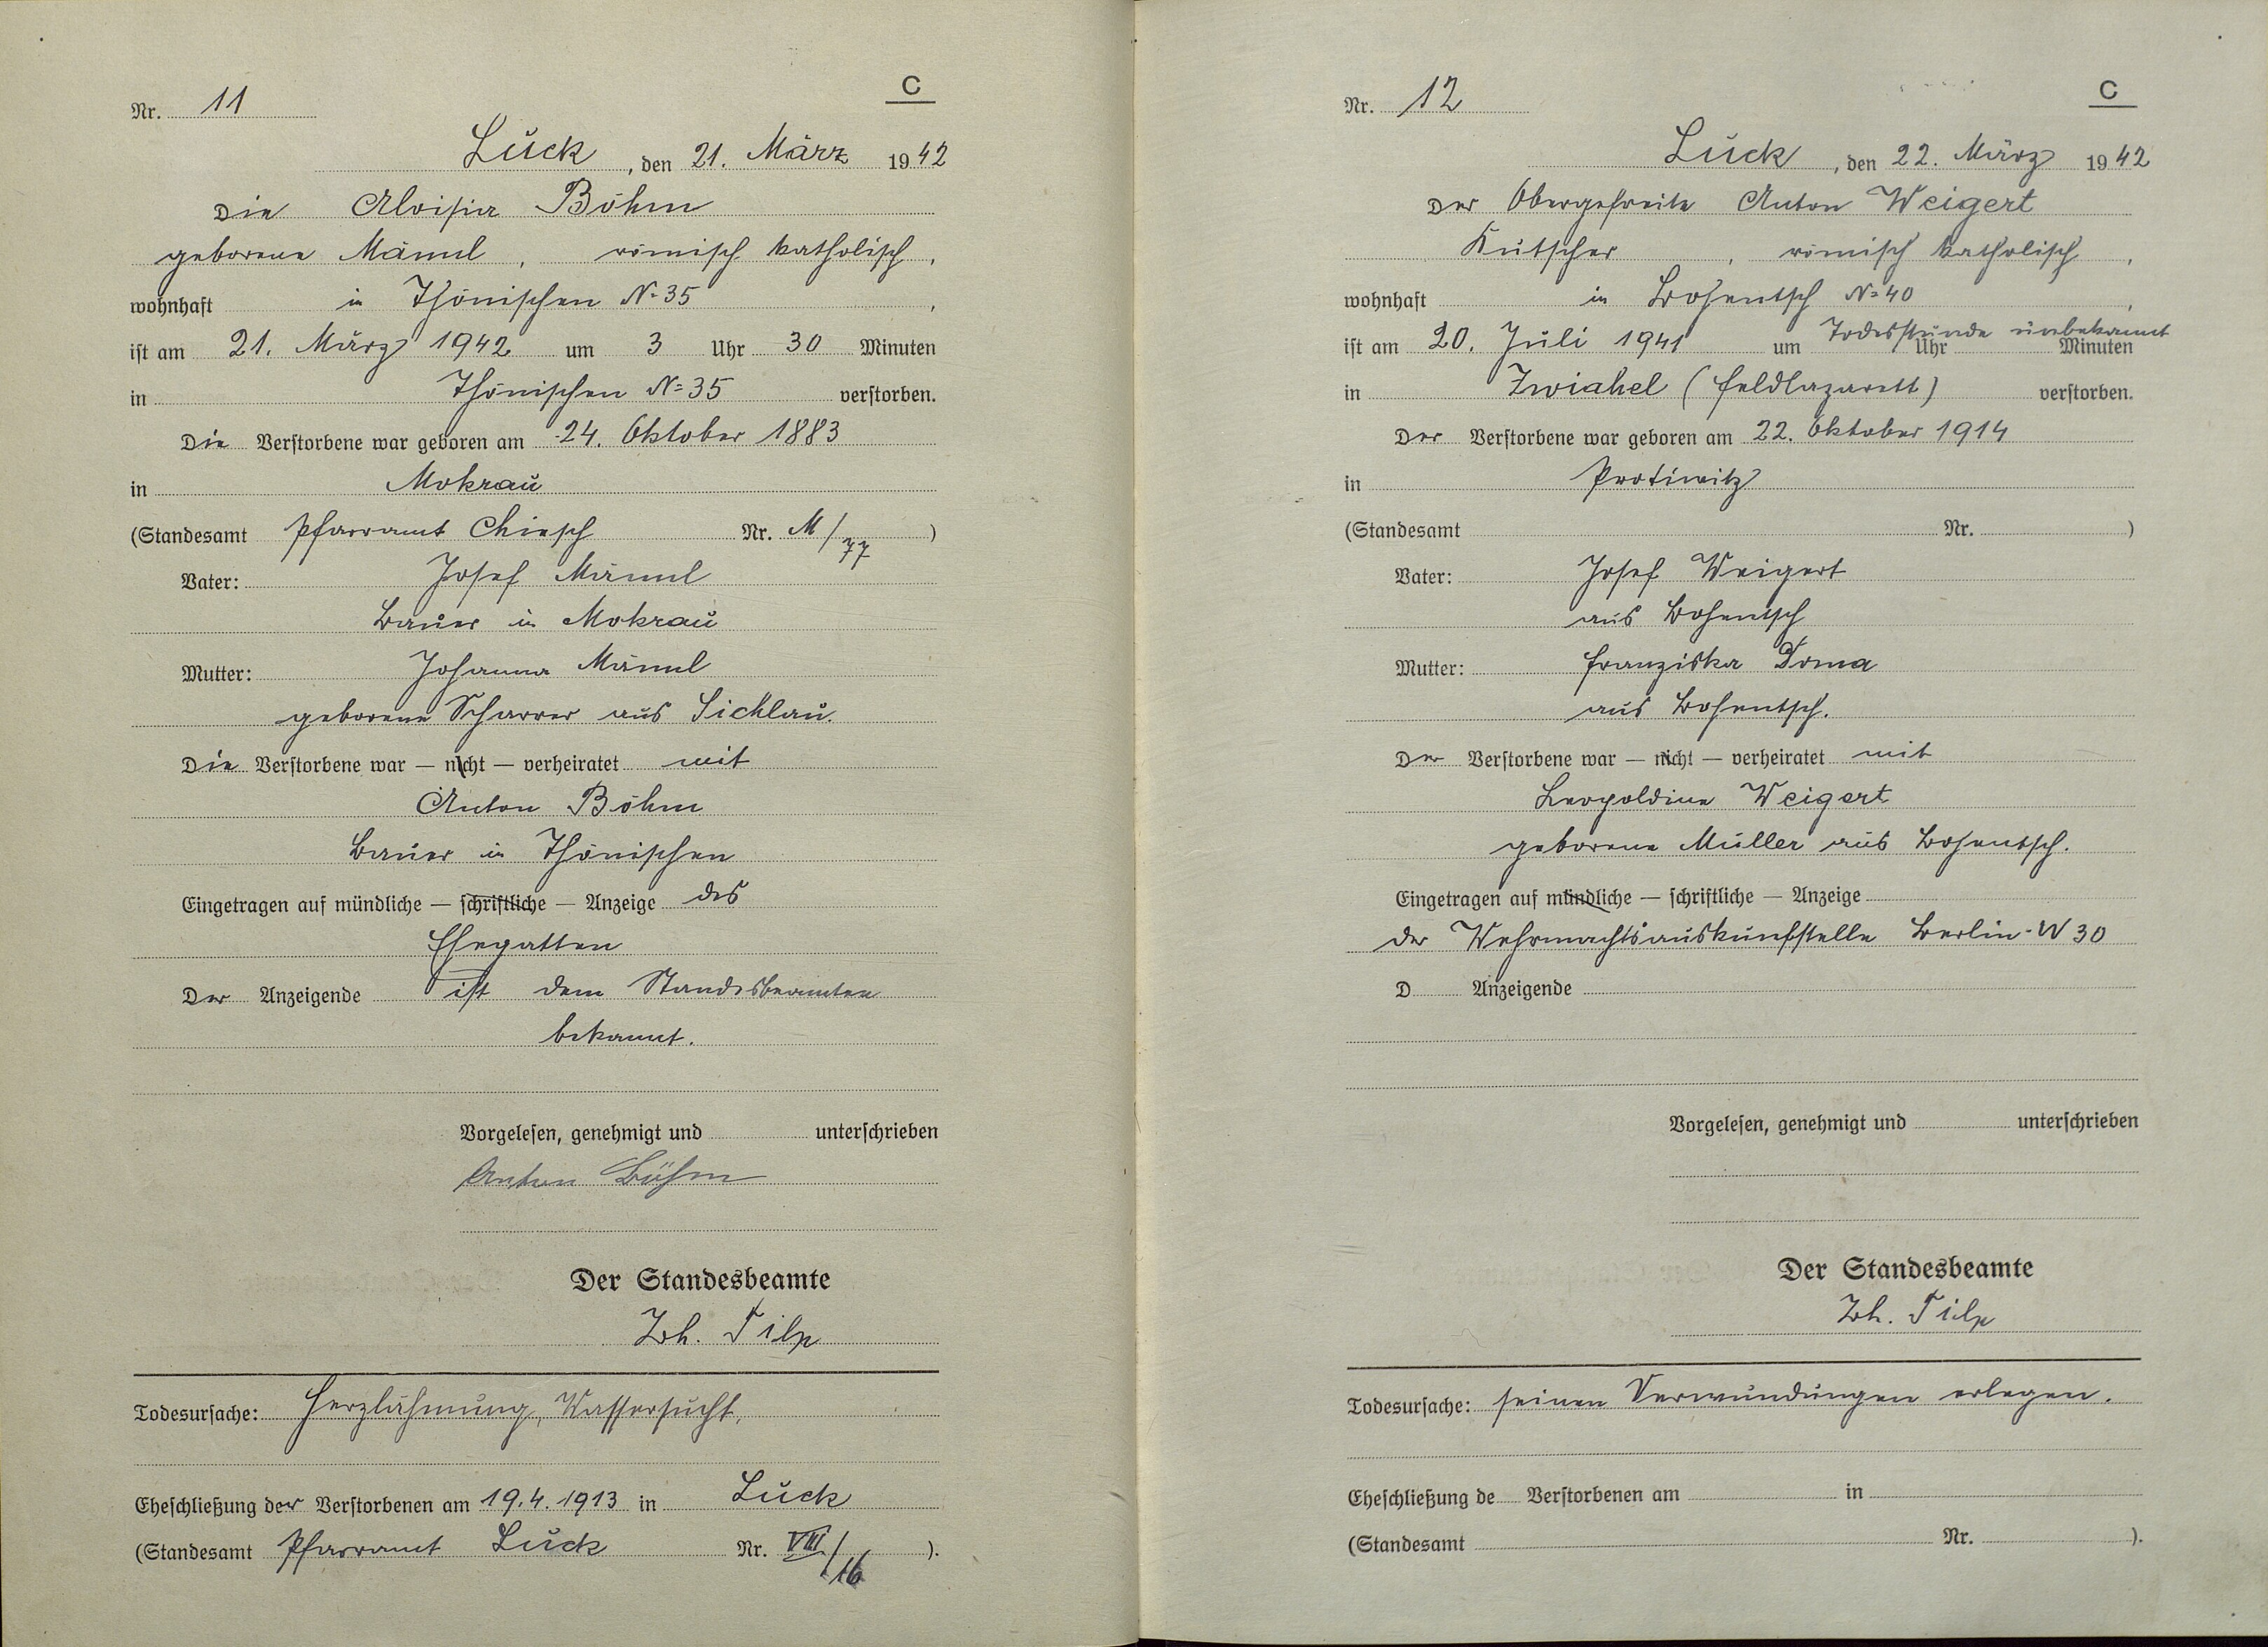 C
Nr. 11
Luck, den 21. März 1942
Die Aloisia Böhm
geborene Männl, römisch katholisch,
wohnhaft in Thönischen No 35,
ist am 21. März 1942 um 3 Uhr 30 Minuten
in Thönischen No 35 verstorben.
Die Verstorbene war geboren am 24. Oktober 1883
in Mokrau
(Standesamt Pfarramt Chiesch Nr. M/77)
Vater: Josef Männl
Bauer in Mokrau
Mutter: Johanna Männl
geborene Scharrer aus Sichlau.
Die Verstorbene war — nicht — verheiratet mit
Anton Böhm
Bauer in Thönischen
Eingetragen auf mündliche — schriftliche — Anzeige des
Ehegatten
Der Anzeigende ist dem Standesbeamten
bekannt.
Vorgelesen, genehmigt und unterschrieben
Anton Böhm
Der Standesbeamte
Joh. Tilp
Todesursache: Herzlähmung, Wassersucht,
Eheschließung der Verstorbenen am 19.4.1913 in Luck
(Standesamt Pfarramt Luck Nr. VIII/16).
C
Nr. 12
Luck, den 22. März 1942
Der Obergefreite Anton Weigert
Kutscher, römisch katholisch,
wohnhaft in Bohentsch No 40,
ist am 20. Juli 1941 um Todesstunde unbekannt Uhr Minuten
in Zwiahel (Feldlazarett) verstorben.
Der Verstorbene war geboren am 22. Oktober 1914
in Protiwitz
(Standesamt Nr. )
Vater: Josef Weigert
aus Bohentsch
Mutter: Franziska Doma
aus Bohentsch.
Der Verstorbene war — nicht — verheiratet mit
Leopoldine Weigert
geborene Müller aus Bohentsch.
Eingetragen auf mündliche — schriftliche — Anzeige
der Wehrmachtsauskunftstelle Berlin-W 30
D Anzeigende
Vorgelesen, genehmigt und unterschrieben
Der Standesbeamte
Joh. Tilp
Todesursache: seinen Verwundungen erlegen.
Eheschließung de Verstorbenen am in
(Standesamt Nr. ).